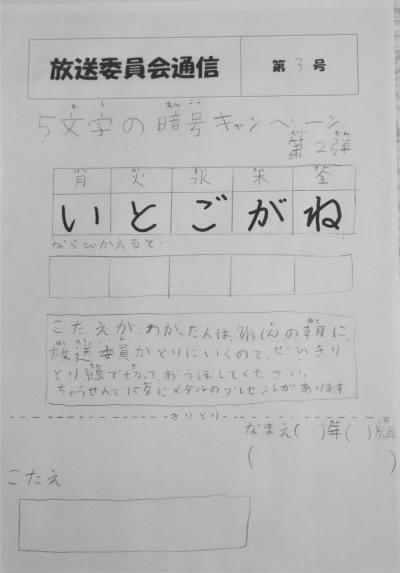 放送委員会通信 第3号
5文字の暗号キャンペーン
第2弾
月 火 水 木 金
い と ご が ね
ならびかえると
こたえが、わかった人は、の朝に、
放送委員がとりにいくので、ぜひきり
とり線で切って、おうぼしてください。
ちゅうせんで15名にメダルのプレゼントがあります
きりとり
なまえ( )年( )組
( )
こたえ